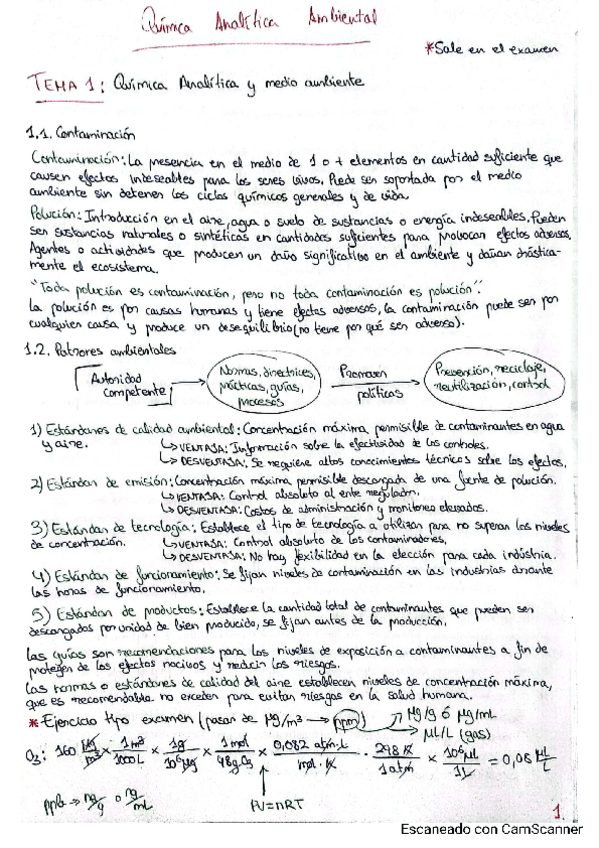 Química Analítica Ambiental
*Sale en el examen
TEMA 1: Química Analítica y medio ambiente
1.1. Contaminación
Contaminación: La presencia en el medio de 1 o + elementos en cantidad suficiente que
causen efectos indeseables para los seres vivos. Puede ser soportada por el medio
ambiente sin detener los ciclos químicos generales y de vida.
Polución: Introducción en el aire, agua o suelo de sustancias o energía indeseables. Pueden
ser sustancias naturales o sintéticas en cantidades suficientes para provocar efectos adversos.
Agentes o actividades que producen un daño significativo en el ambiente y dañan drástica-
mente el ecosistema.
"Toda polución es contaminación, pero no toda contaminación es polución":
La polución es por causas humanas y tiene efectos adversos, la contaminación puede ser por
cualquier causa y produce un desequilibrio (no tiene por qué ser adverso).
1.2. Patrones ambientales
Autoridad
competente
Normas, directrices,
prácticas, guías,
procesos
Promover
políticas
Prevención, reciclaje,
reutilización, control
1) Estándares de calidad ambiental: Concentración máxima permisible de contaminantes en agua
y aire.
↳ VENTAJA: Información sobre la efectividad de los controles.
↳ DESVENTAJA: Se requiere altos conocimientos técnicos sobre los efectos.
2) Estándar de emisión: Concentración máxima permisible descargada de una fuente de polución.
↳ VENTAJA: Control absoluto al ente regulador.
↳ DESVENTAJA: Costos de administración y monitoreo elevados.
3) Estándar de tecnología: Establece el tipo de tecnología a utilizar para no superar los niveles
de concentración.
↳ VENTAJA: Control absoluto de los contaminadores.
↳ DESVENTAJA: No hay flexibilidad en la elección para cada indústria.
4) Estándar de funcionamiento: Se fijan niveles de contaminación en las industrias durante
las horas de funcionamiento.
5) Estándar de productos: Establece la cantidad total de contaminantes que pueden ser
descargados por unidad de bien producido, se fijan antes de la producción.
Las guías son recomendaciones para los niveles de exposición a contaminantes a fin de
proteger de los efectos nocivos y reducir los riesgos.
Las normas o estándares de calidad del aire establecen niveles de concentración máxima,
que es recomendable no exceder para evitar riesgos en la salud humana.
* Ejercicio tipo examen (pasar de µg/m³ → ppm) → µg/g ó µg/mL
→ µL/L (gas)
O₃: 160 µg/m³ × 1m³/1000L × 1g/10⁶µg × 1mol/48g O₃ × 0,082 atm·L/mol·K · 298K/1atm × 10⁶µL/1L = 0,08 µL/L
ppb → ng/g o ng/mL
PV=nRT
1.
Escaneado con CamScanner